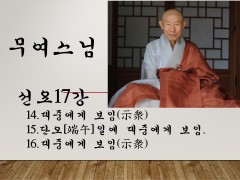 무여스님
선요17강
14.대중에게 보임(示衆)
15.단오[端午]일에 대중에게 보임.
16.대중에게 보임(示衆)